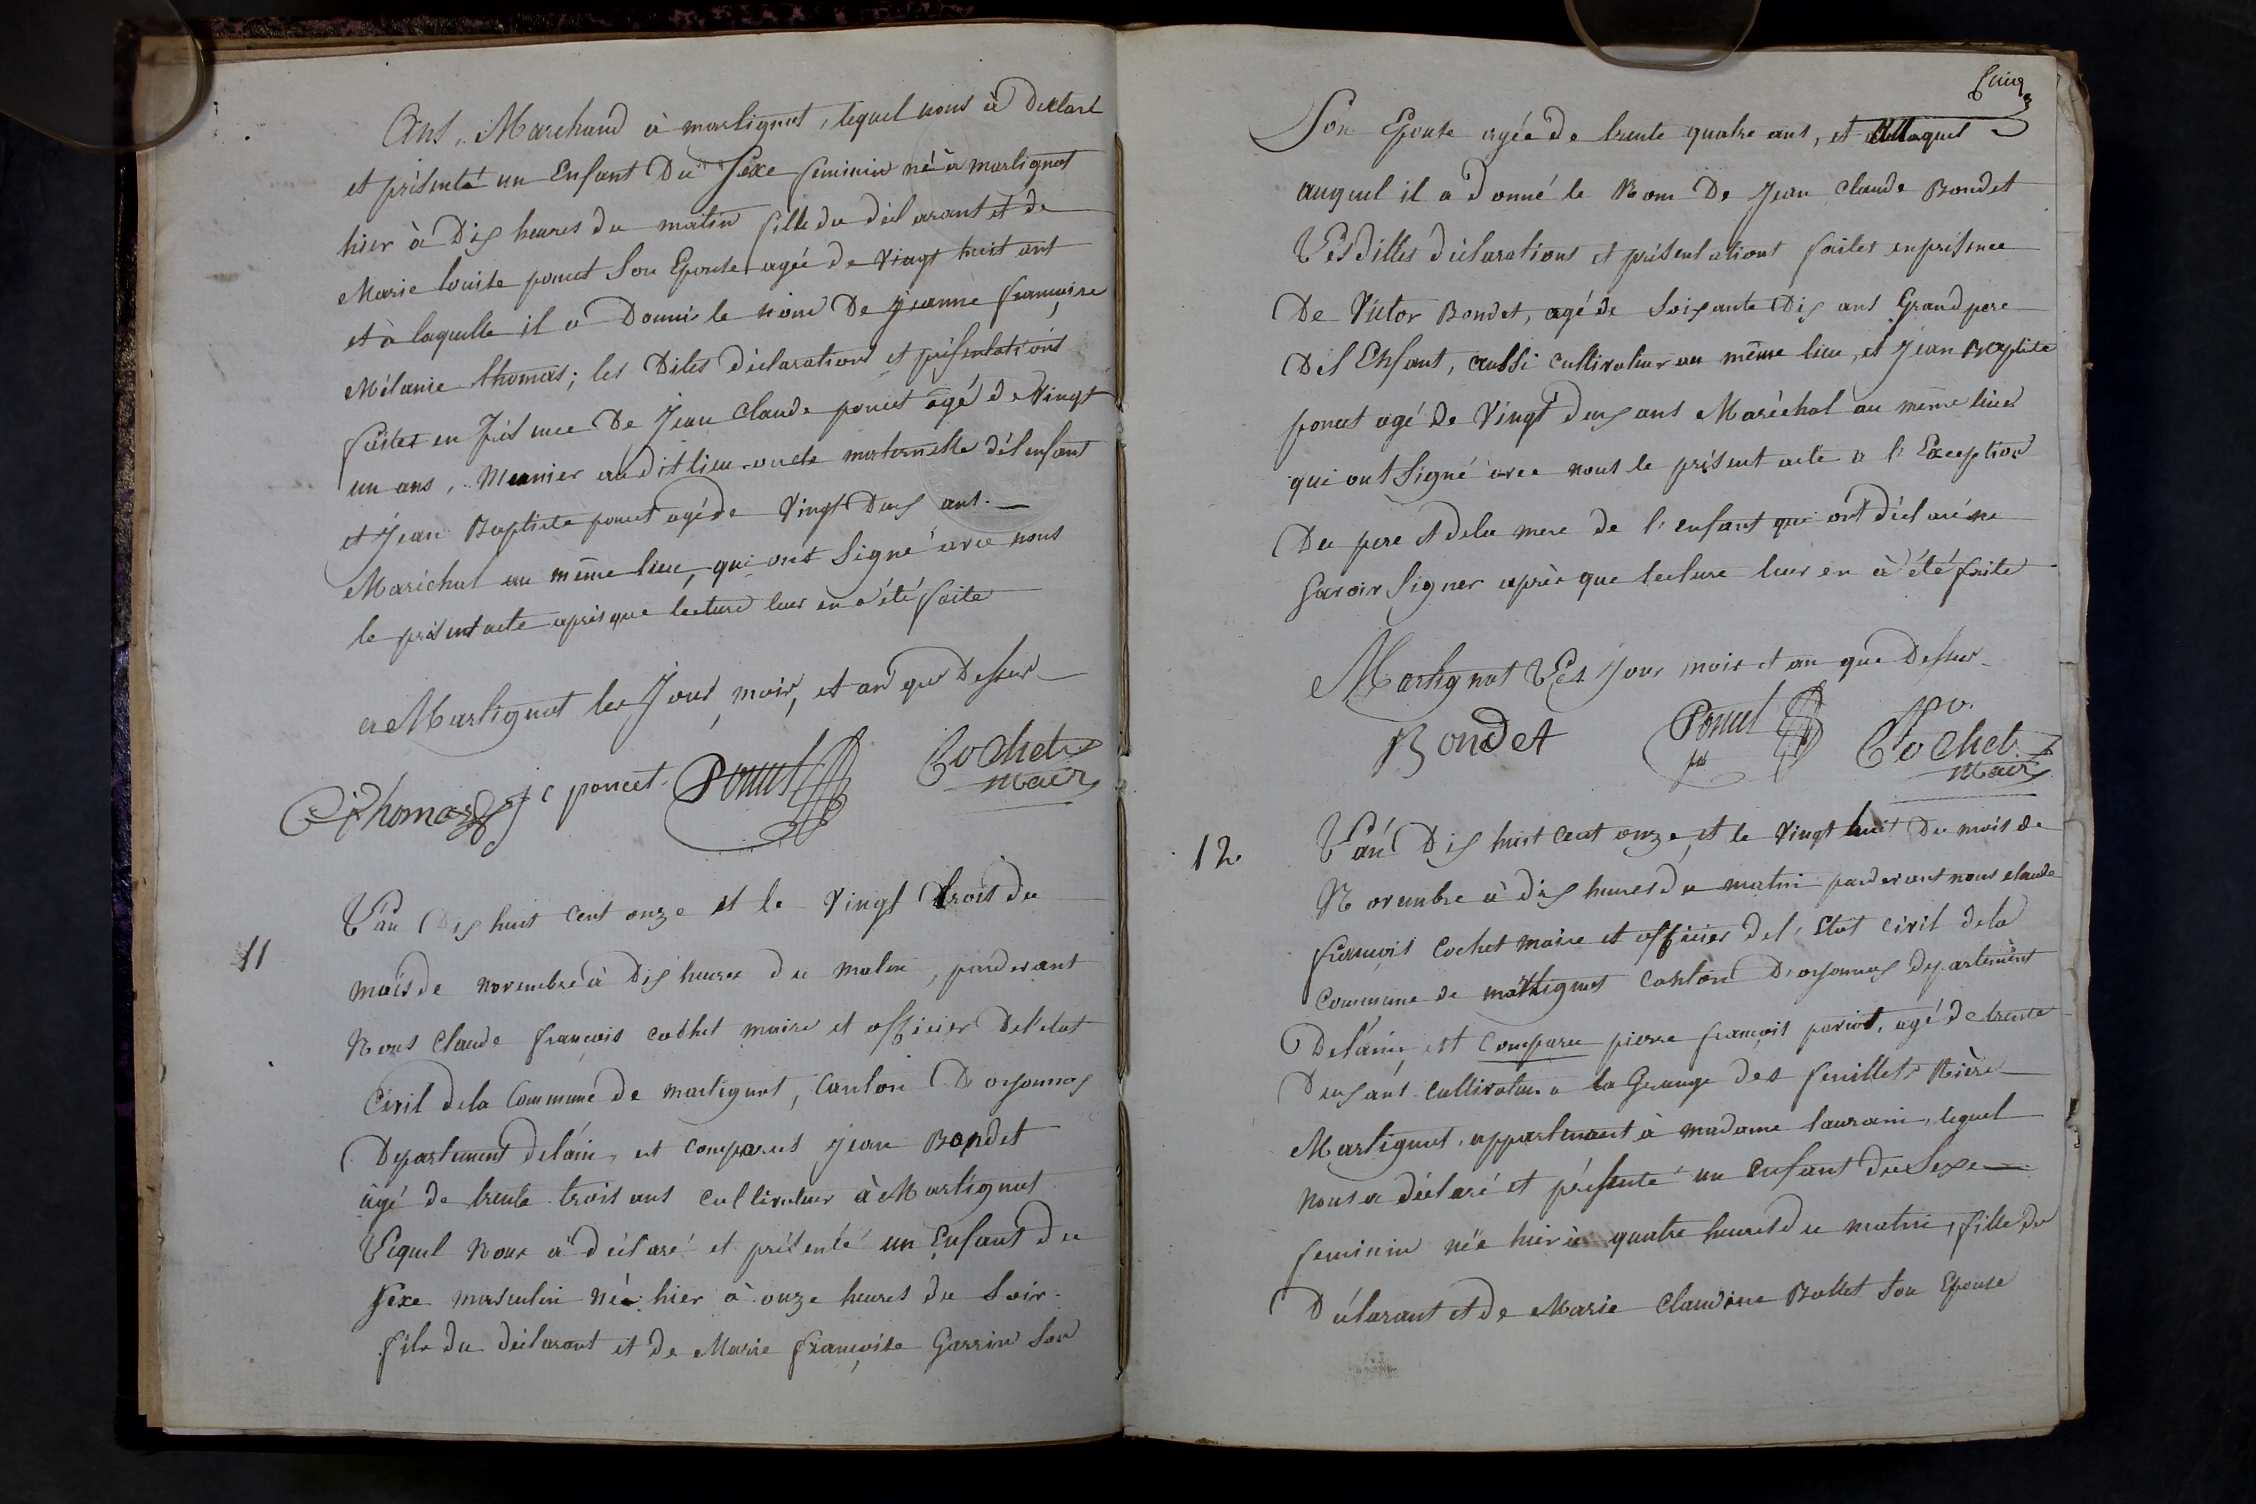 Ans, Marchand à martignat, lequel nous à déclaré
et présenté un Enfant Du Sexe feminin né à martignat
hier à Dix heures du matin fille du déclarant et de
Marie louise poncet Son Epouse agée de Vingt huit ans
et à laquelle il a Donnée le nom De jeanne françoise
Mélanie thomas; les Dites déclarations et présentations
faites en présence De Jean Claude poncet âgé de Vingt
un ans, Meunier audit lieu oncle maternelle dél enfant
et Jean Baptiste poncet agé de Vingt Deux ans.
Maréchal au même lieu, qui ont Signé avec nous
le présent acte après que lecture leur en a été faite
a Martignat les Jour, mois, et an que Dessus
Thomas jc poncet Poncet Cochet
maire
11
L'an Dix huit cent onze et le Vingt trois du
mois de novembre à Dix heures du matin, pardevant
Nous Claude françois cochet maire et officier De l'etat
Civil dela Commune de martignat, Canton D'oyonnax
Departement de l'ain, est comparut jean Bondet
âgé de trente trois ans cultivateur à Martignat
Lequel Nous à déclaré et présenté un Enfant du
Sexe masculin né hier à onze heures du Soir
fils du déclarant et de Marie françoise Garrin Son
Cinq
Son Epouse agée de trente quatre ans, et
auquel il a donné le Nom De Jean Claude Bondet
Les dittes déclarations et présentations faites en présence
De Victor Bondet, agé de Soixante Dix ans Grand pere
Dél Enfant, aussi cultivateur au même lieu, et Jean Baptiste
poncet agé de Vingt deux ans Maréchal au même lieu
qui ont Signé avec nous le présent acte a l'Exception
Du pere et dela mere de l'enfant qui ont déclaré ne
Savoir Signer après que lecture leur en à été faite
Martignat Les Jour mois et an que Dessus
Bondet Poncet Cochet
maire
12
L'an Dix huit cent onze, et le Vingt huit Du mois de
Novembre à dix heures du matin pardevant nous claude
françois Cochet maire et officier del'Etat Civil dela
Commune de martignat Canton D'oyonnax departement
De l'ain, est Comparu pierre françois pariot, agé de trente
Deux ans Cultivateur a la Grange des feuillets Rière
Martignat, appartenant à madame laurain, lequel
Nous a déclaré et présenté un Enfant du Sexe
feminin née hier à quatre heures du matin, fille du
Déclarant et de Marie Claudine Bollet Son Epouse